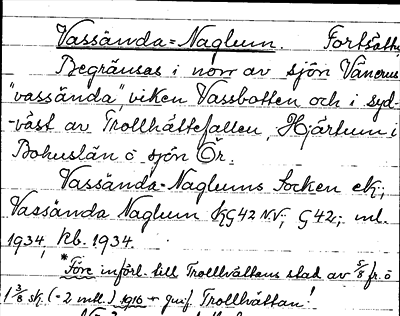 Vassända-Naglum. Fortsättn
Begränsas i norr av sjön Vänerns
"vassända", viken Vassbotten och i syd-
-väst av Trollhättefallen, Hjärtum i
Bohuslän o sjön Ör.
Vassända-Naglums Socken ek;
Vassända Naglum KG42 NV; G42; ml.
1934, kb. 1934.
*Före införl. till Trollhättans stad av 5/8 fr. o
1 3/8 sk. (-2 mtl.) 1916 Trollhättan!